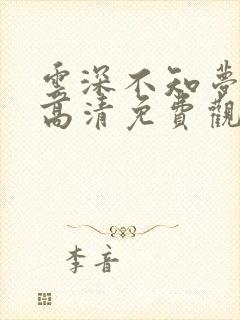 雲深不知夢
高清免費觀
李音